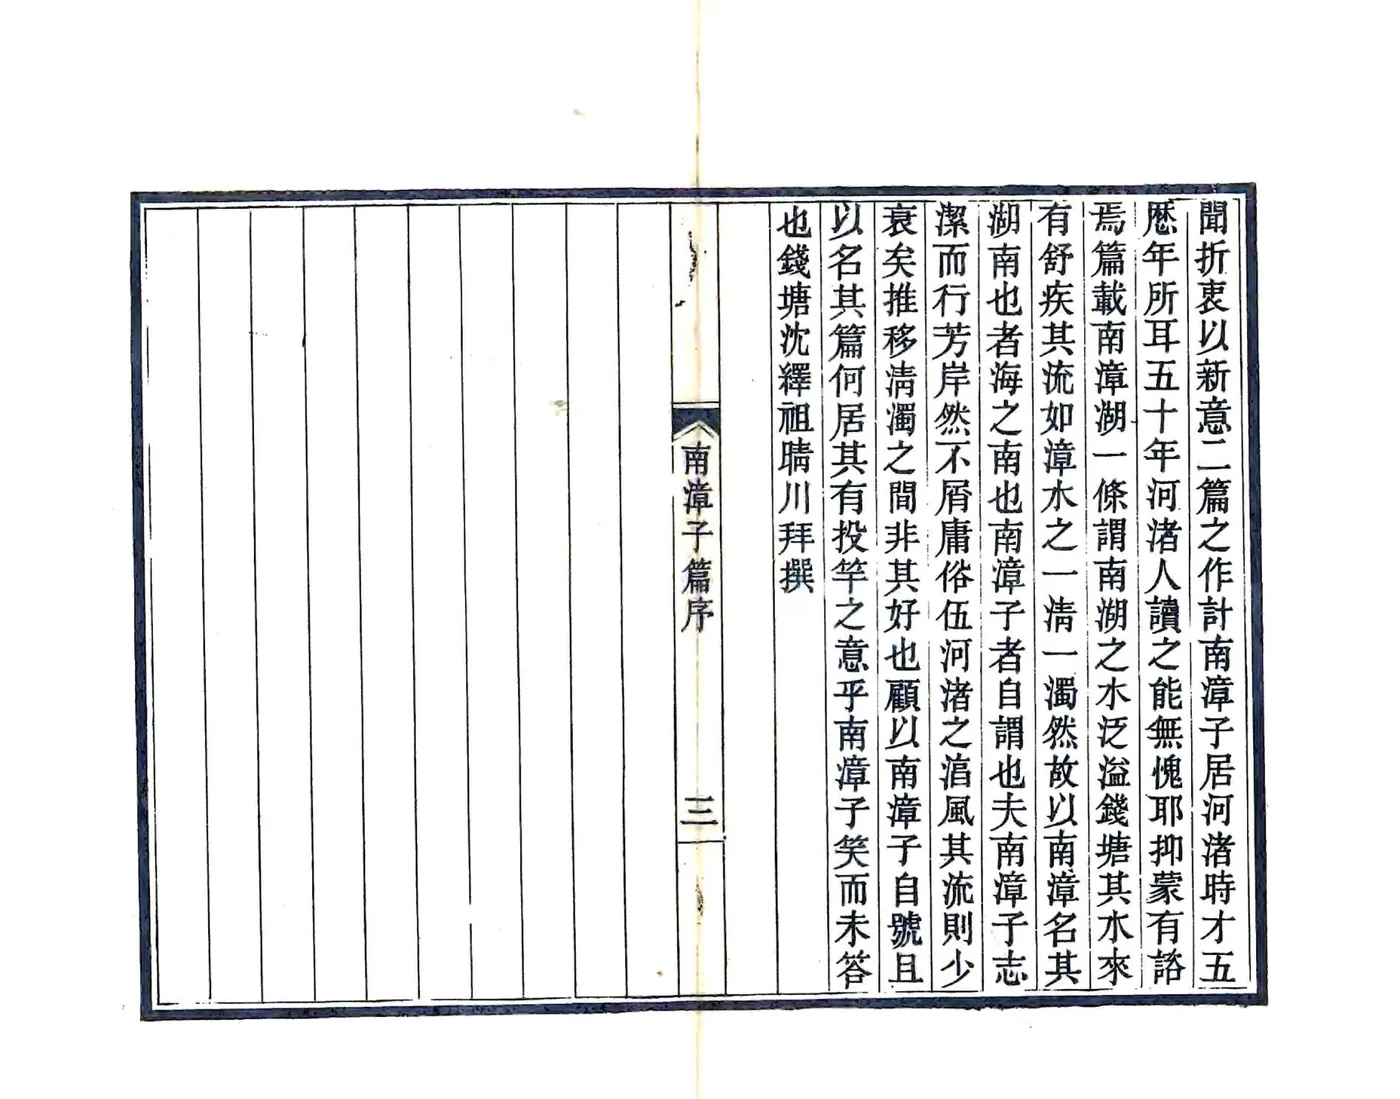 聞折衷以新意二篇之作計南漳子居河渚時才五
歷年所耳五十年河渚人讀之能無愧耶抑蒙有諮
焉篇載南漳湖一條謂南湖之水泛溢錢塘其水來
有舒疾其流如漳水之一淸一濁然故以南漳名其
湖南也者海之南也南漳子者自謂也夫南漳子志
潔而行芳岸然不屑庸俗伍河渚之滔風其流則少
衰矣推移淸濁之間非其好也顧以南漳子自號且
以名其篇何居其有投竿之意乎南漳子笑而未答
也錢塘沈繹祖晴川拜撰
南漳子篇序
三